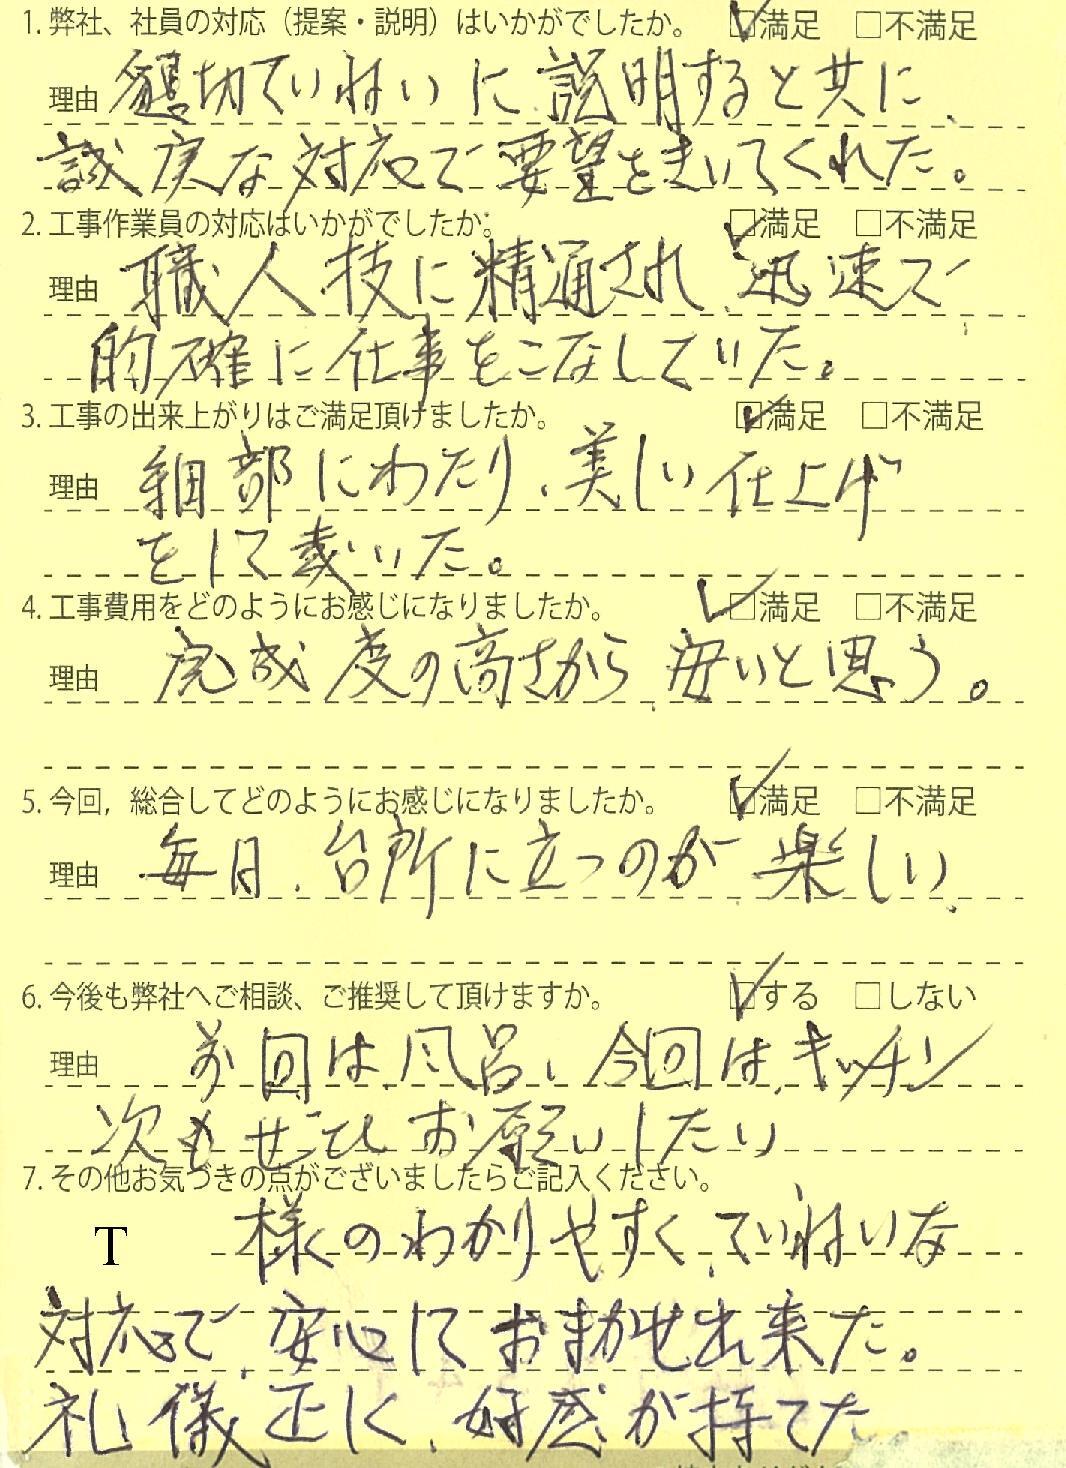 1. 弊社、社員の対応（提案・説明）はいかがでしたか。 ☑満足 □不満足
理由 親切ていねいに説明すると共に、
誠実な対応で要望をきいてくれた。
2. 工事作業員の対応はいかがでしたか。 ☑満足 □不満足
理由 職人技に精通され 迅速で
的確に仕事をこなしていた。
3. 工事の出来上がりはご満足頂けましたか。 ☑満足 □不満足
理由 細部にわたり、美しい仕上げ
をして戴いた。
4. 工事費用をどのようにお感じになりましたか。 ☑満足 □不満足
理由 完成度の高さから 安いと思う。
5. 今回，総合してどのようにお感じになりましたか。 ☑満足 □不満足
理由 毎日、台所に立つのが 楽しい。
6. 今後も弊社へご相談、ご推奨して頂けますか。 ☑する □しない
理由 前回は風呂、今回は、キッチン
次もぜひお願いしたい
7. その他お気づきの点がございましたらご記入ください。
T 様のわかりやすく、ていねいな
対応で、安心しておまかせ出来た。
礼儀正しく、好感が持てた